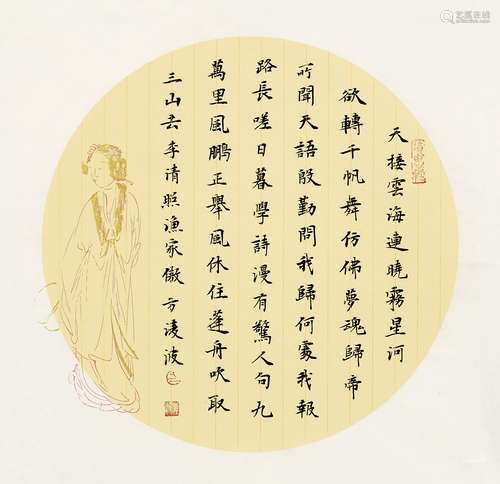 天接雲海連曉霧星河
欲轉千帆舞仿佛夢魂歸帝
所聞天語殷勤問我歸何處我報
路長嗟日暮學詩漫有驚人句九
萬里風鵬正舉風休住蓬舟吹取
三山去李清照漁家傲方凌波
艺狐在线